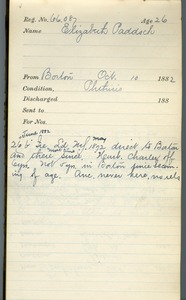 Reg. No. 66,087 Age 26
Name Elizabeth Paddock
From Boston Oct. 10 1882
Condition, Phthisis
Discharged 188
Sent to
For Nos.
June 1882
26 b Ire. Ld. NY. May 1872 direct to Boston
and there since. Husb. Charley off
Not in Boston since
of age. Anc. never here, no rela